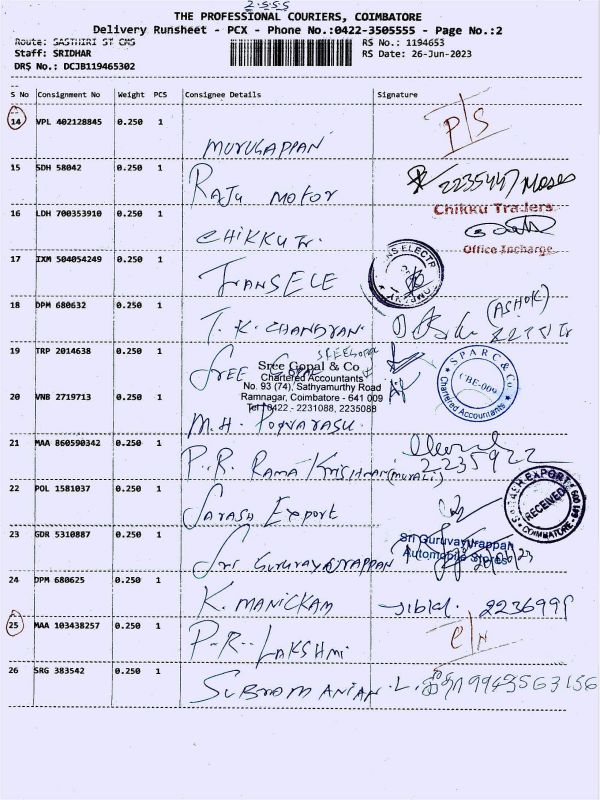 THE PROFESSIONAL COURIERS, COIMBATORE
Delivery Runsheet - PCX - Phone No.:0422-3505555 - Page No.:2
Route: SASTHIRI ST CMS RS No.: 1194653
Staff: SRIDHAR RS Date: 26-Jun-2023
DRS No.: DCJB119465302
S No Consignment No Weight PCS Consignee Details Signature
14 VPL 402128845 0.250 1 P/S
MURUGAPPAN
15 SDH 58042 0.250 1
RAJU MOTOR 2235447 Moses
16 LDH 700353910 0.250 1 Chikku Traders
CHIKKU Tr. Office Incharge
17 IXM 504054249 0.250 1
TRANS ELE
18 DPM 680632 0.250 1 (ASHOK)
T. K. CHANDRAN
19 TRP 2014638 0.250 1
SREE GOPAL
Sree Gopal & Co
Chartered Accountants
No. 93 (74), Sathyamurthy Road
Ramnagar, Coimbatore - 641 009
Tel : 0422 - 2231088, 2235088
SPARC & Co
CBE-009
Chartered Accountants
20 VNB 2719713 0.250 1
M.H. PONVARASU
21 MAA 860590342 0.250 1
P. R. RAMA KRISHNAN (MURALI) 2235922
22 POL 1581037 0.250 1
SARASH EXPORT
SARASH EXPORT
RECEIVED
COIMBATORE - 641 009
23 GDR 5310887 0.250 1
Sri GURUVAYURAPPAN
Sri Guruvayurappan
Automobile Stores
24 DPM 680625 0.250 1
K. MANICKAM
25 MAA 103438257 0.250 1
P. R. LAKSHMI
26 SRG 383542 0.250 1
SUBRAMANIAN . L. 9943563156